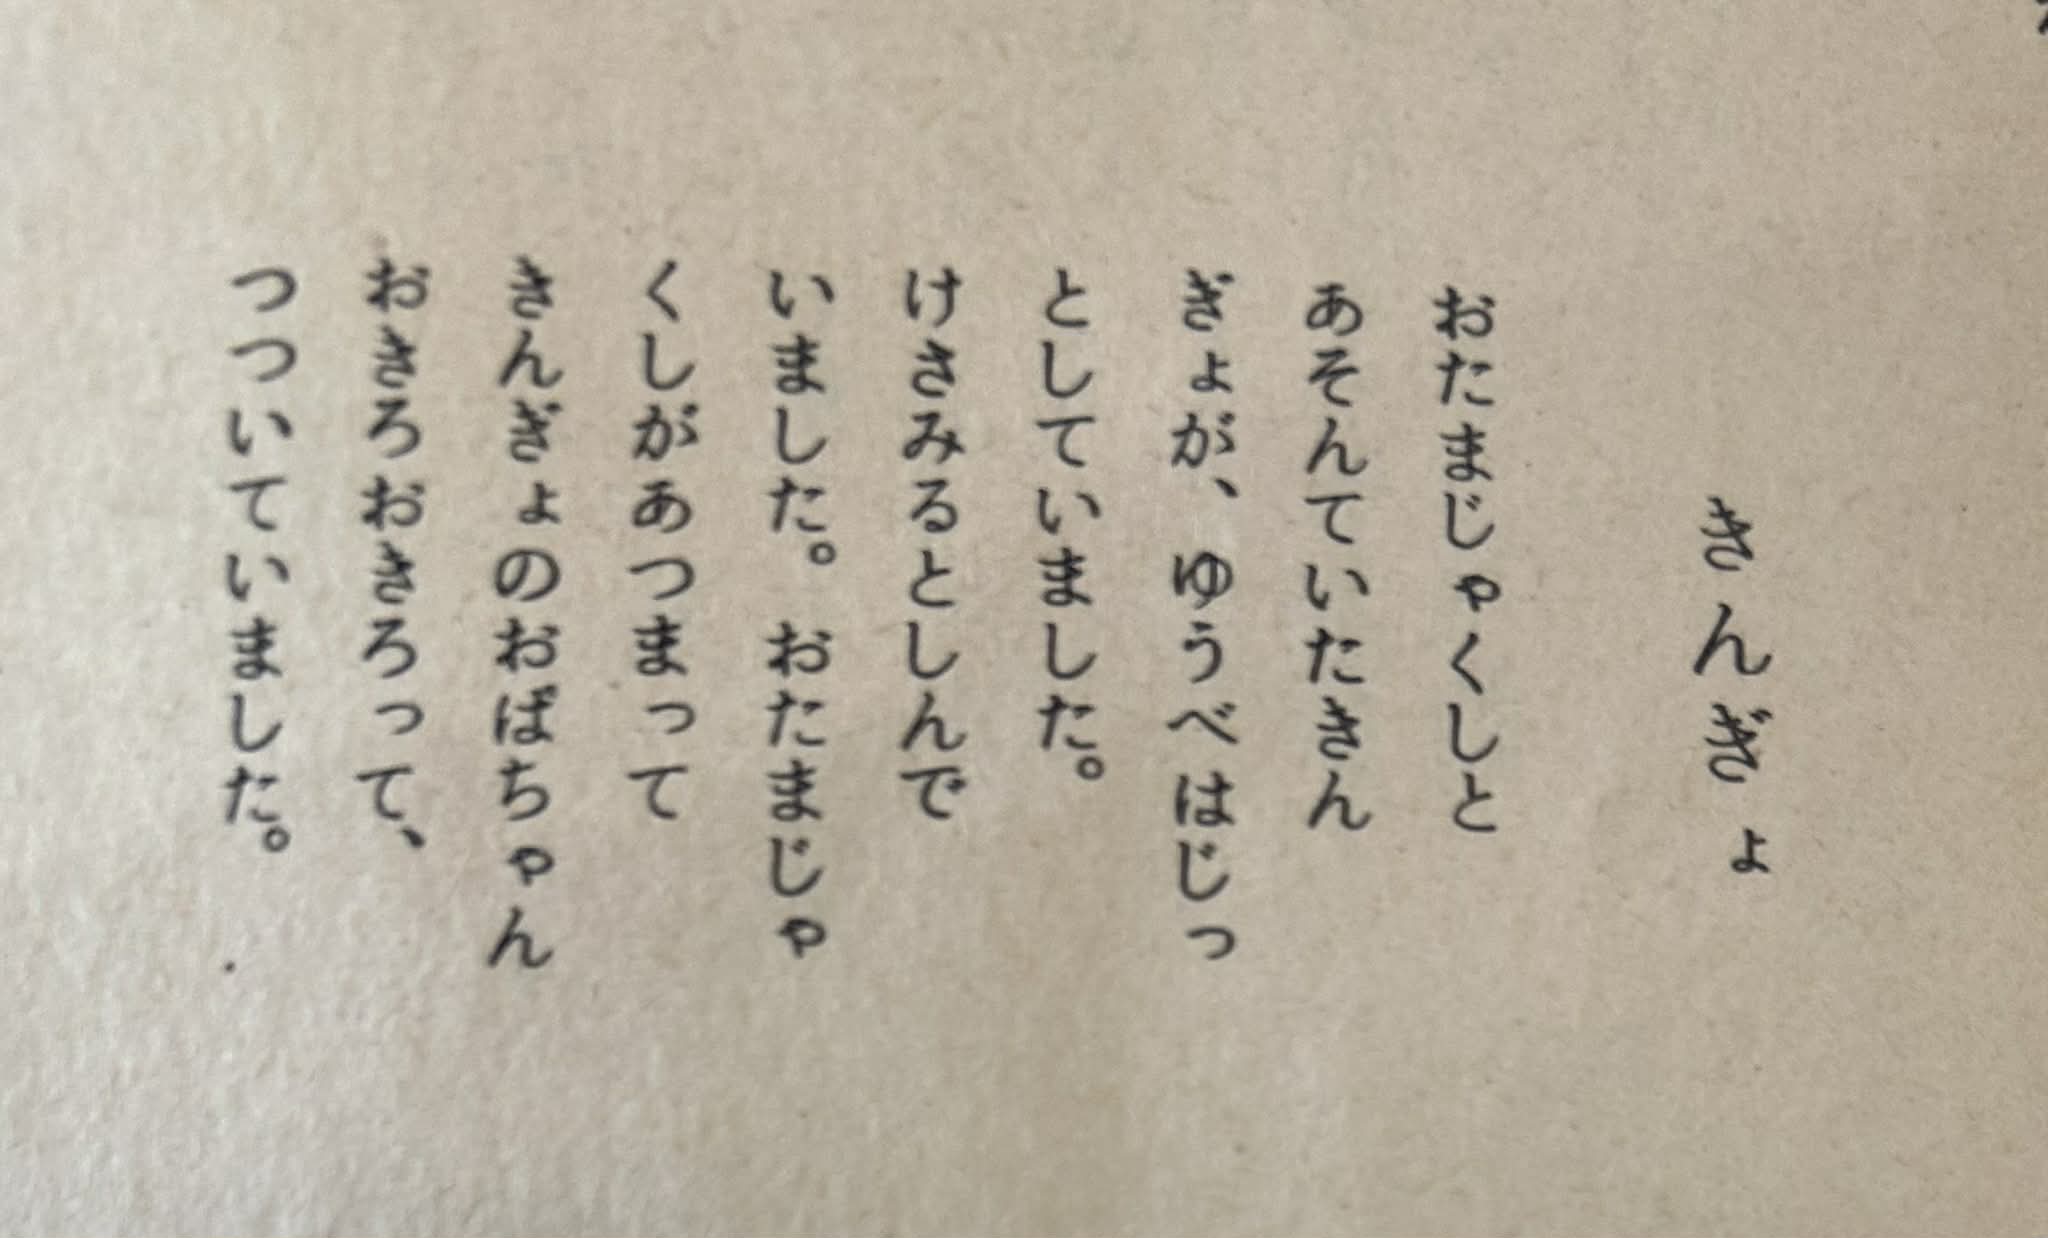 きんぎょ
おたまじゃくしと
あそんでいたきん
ぎょが、ゆうべはじっ
としていました。
けさみるとしんで
いました。おたまじゃ
くしがあつまって
きんぎょのおばちゃん
おきろおきろって、
つついていました。